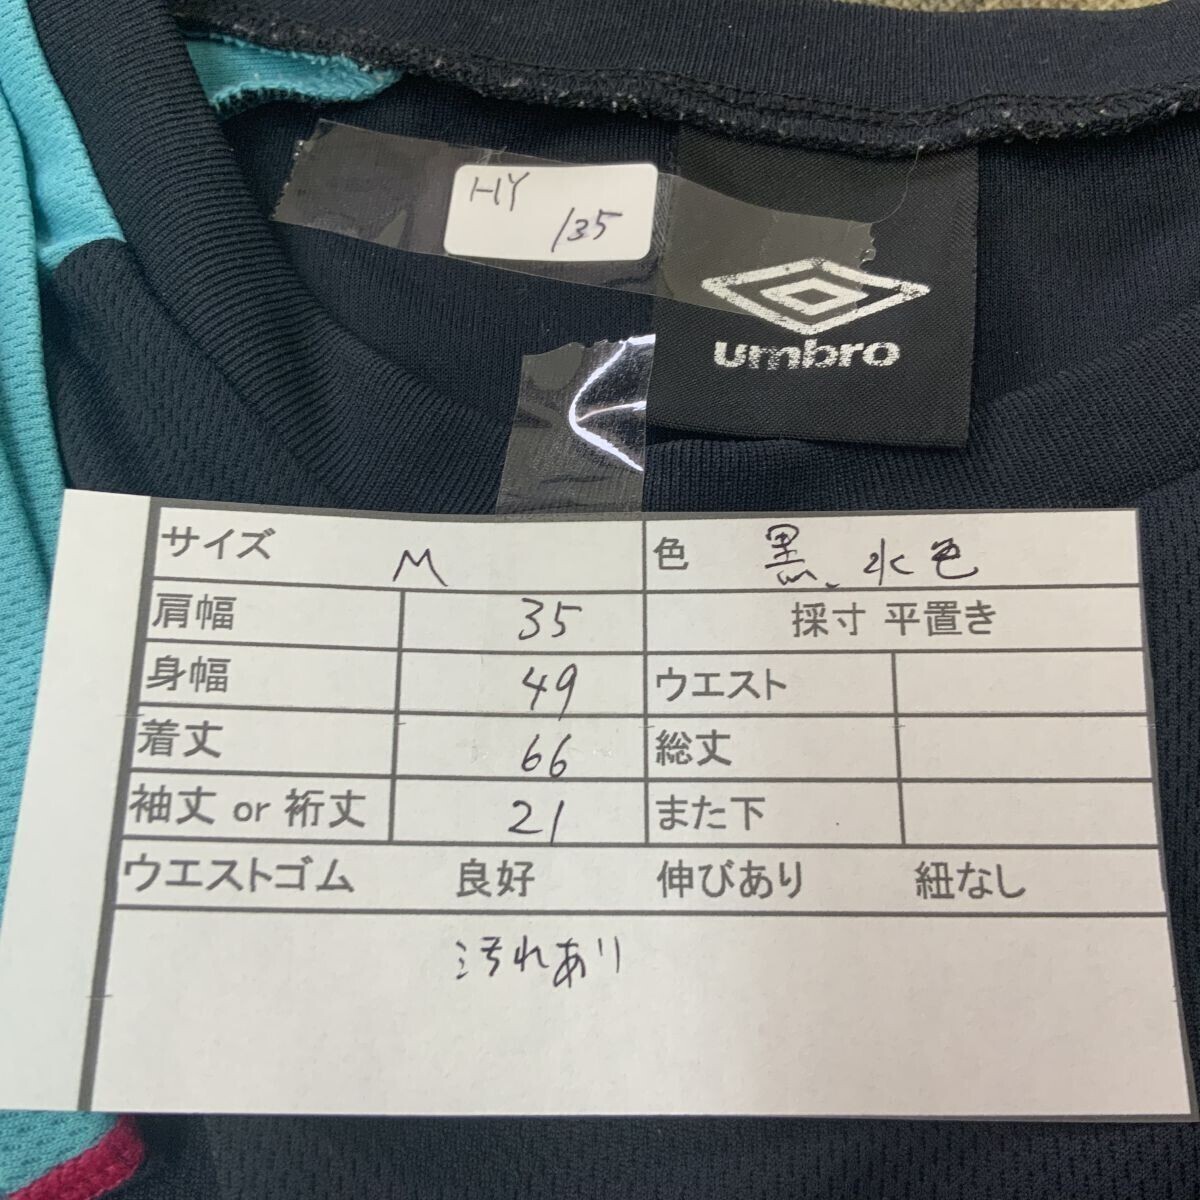 HY
135
umbro
サイズ M 色 黒、水色
肩幅 35 採寸 平置き
身幅 49 ウエスト
着丈 66 総丈
袖丈 or 裄丈 21 また下
ウエストゴム 良好 伸びあり 紐なし
汚れあり